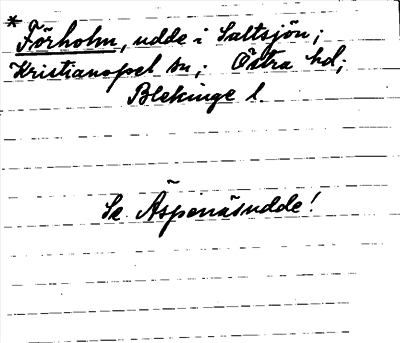 * Förholm, udde i Saltsjön;
Kristianopel sn,; Östra hd;
Blekinge l.
Se Äspenäsudde!